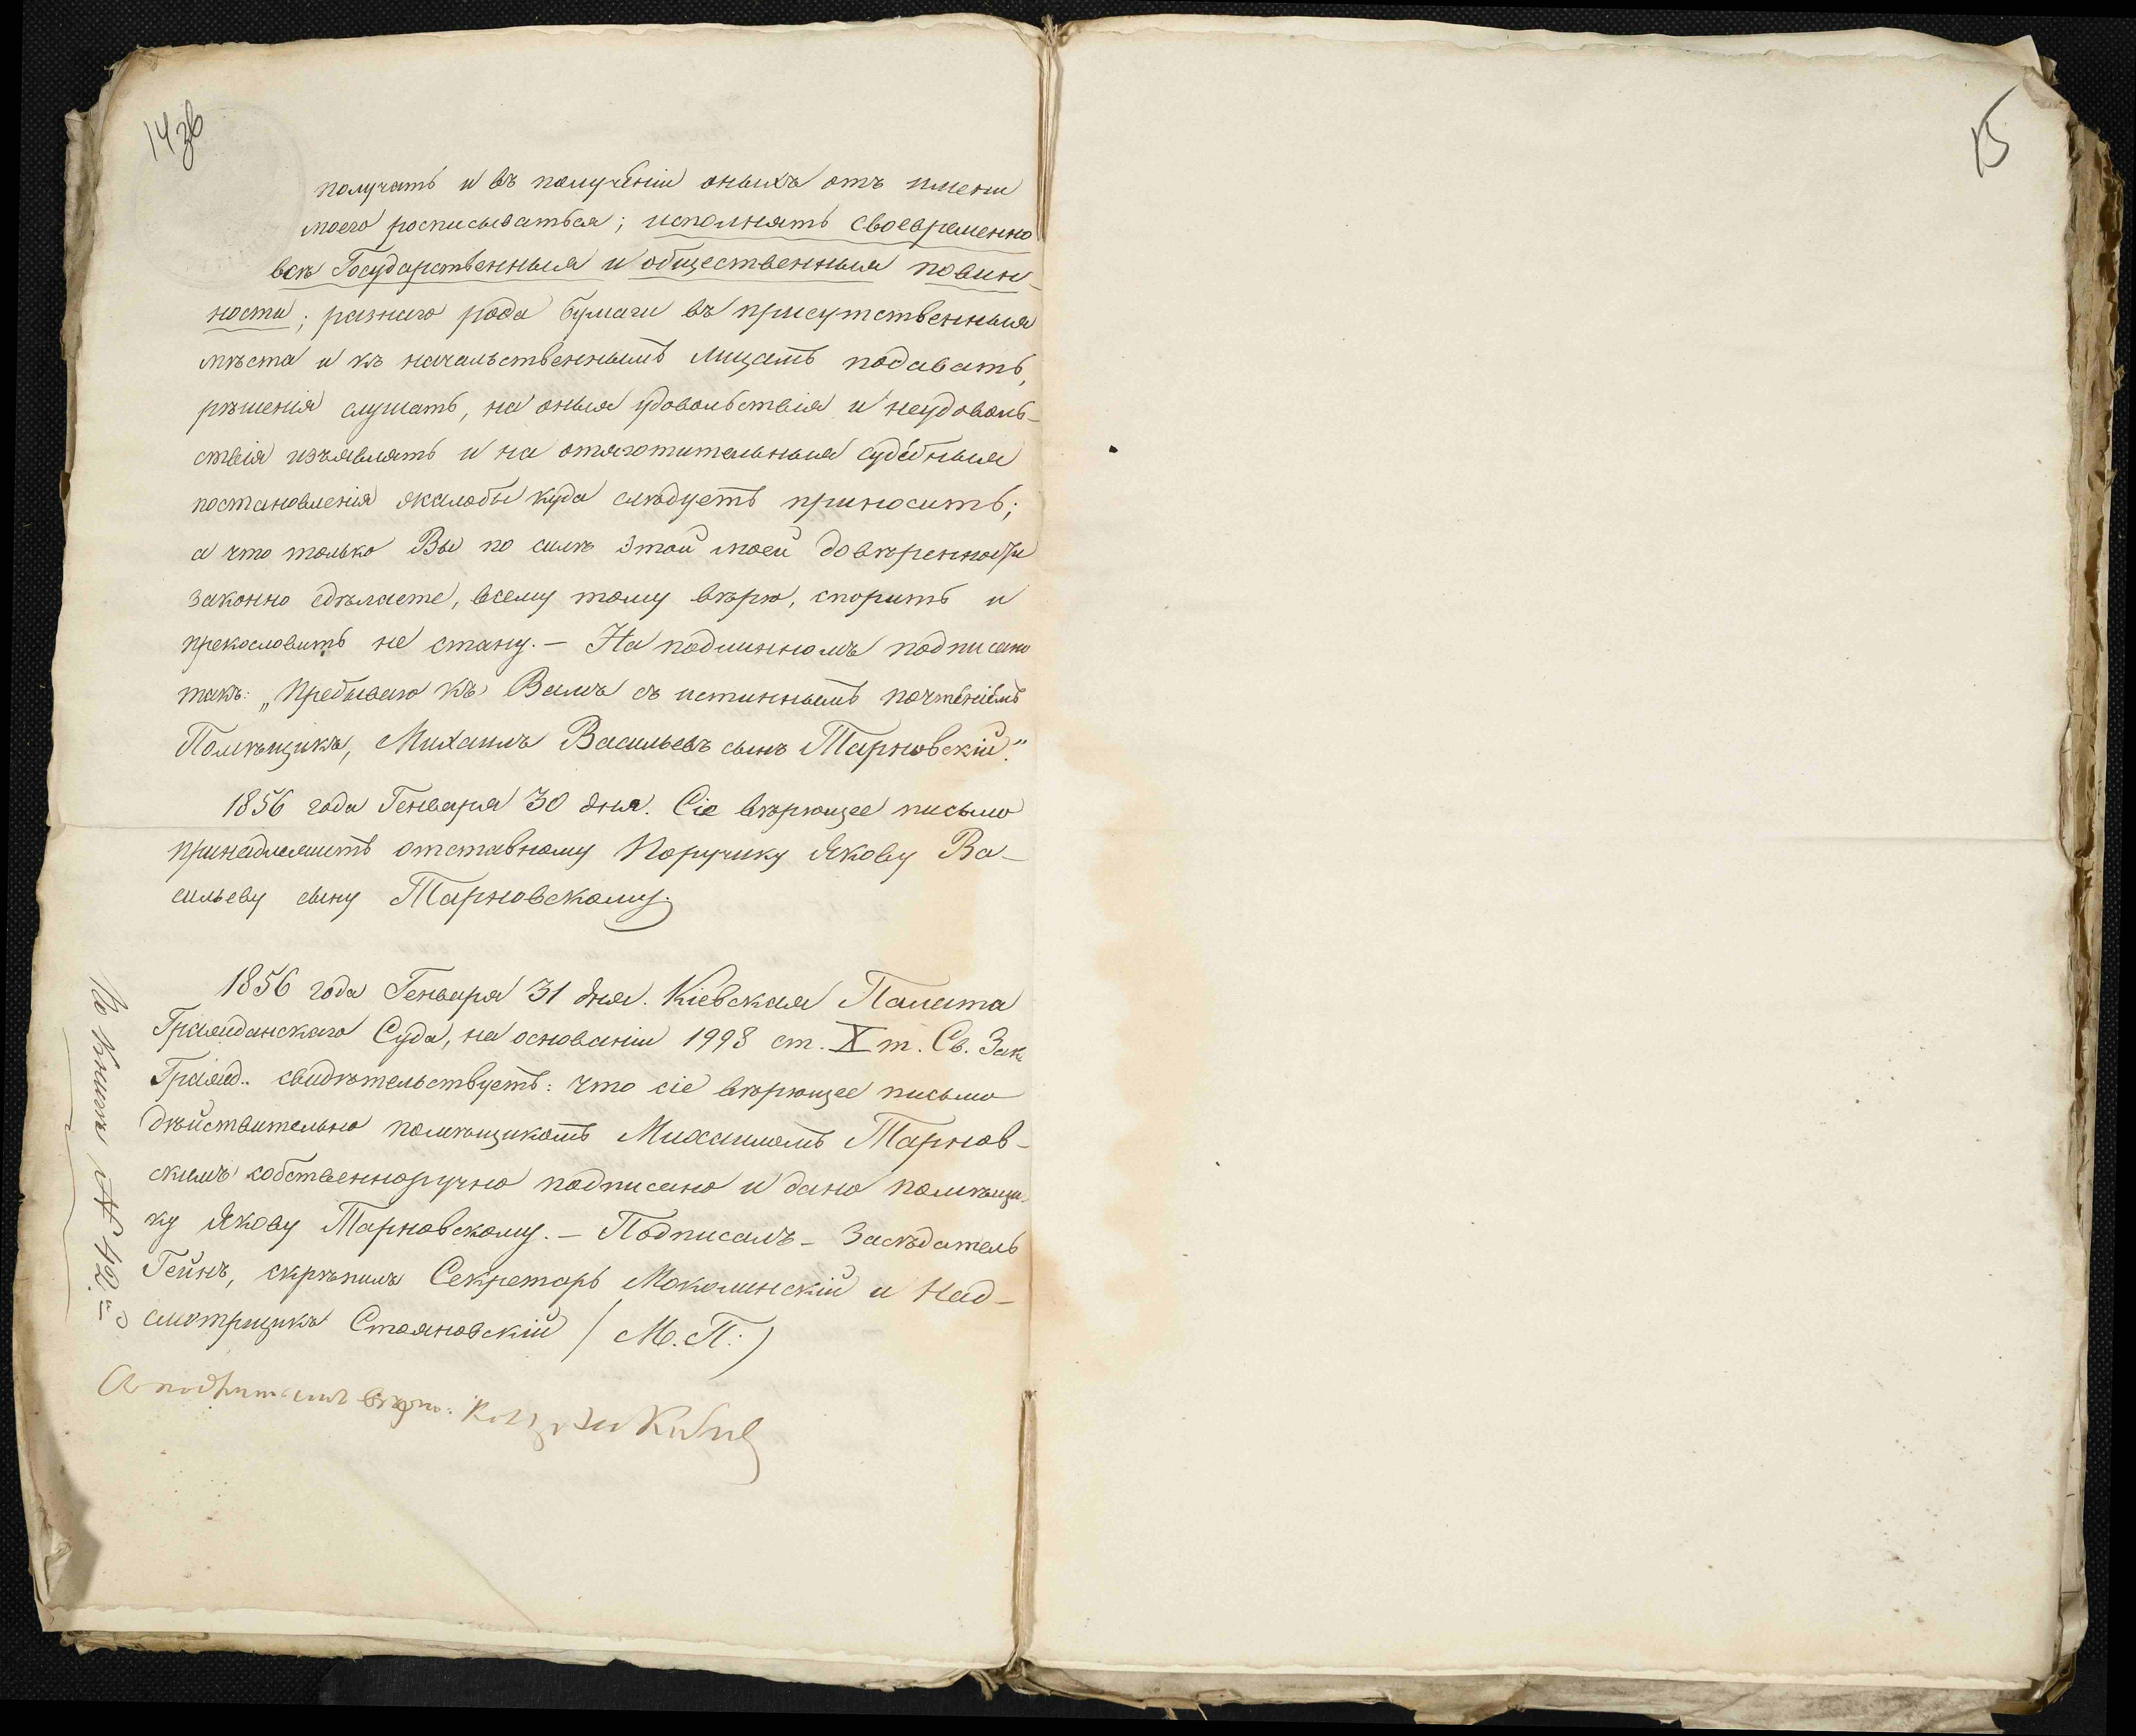 14зв
15
получать и въ полученіи оныхъ отъ имени
моего росписываться; исполнять своевременно
всѣ Государственныя и общественныя повин-
ности; разнаго рода бумаги въ присутственныя
мѣста и къ начальственнымъ лицамъ подавать,
рѣшенія слушать, на оныя удовольствія и неудоволь-
ствія изъявлять и на отяготительныя судебныя
постановленія жалобы куда слѣдуетъ приносить;
а что только Вы по силѣ этой моей довѣренности
законно сдѣлаете, всему тому вѣрю, спорить и
прекословить не стану. — На подлинномъ подписано
такъ: „Пребываю къ Вамъ съ истиннымъ почтеніемъ
Помѣщикъ, Михаилъ Васильевъ сынъ Тарновскій."
1856 года Генваря 30 дня. Сіе вѣрющее письмо
принадлежитъ отставному Поручику Якову Ва-
сильеву сыну Тарновскому.
1856 года Генваря 31 дня. Кіевская Палата
Гражданскаго Суда, на основаніи 1998 ст. X т. Св. Зак.
Гражд. свидѣтельствуетъ: что сіе вѣрющее письмо
дѣйствительно помѣщикомъ Михаиломъ Тарнов-
скимъ собственноручно подписано и дано помѣщи-
ку Якову Тарновскому. — Подписалъ — Засѣдатель
Гейнъ, скрѣпилъ Секретарь Моколинскій и Над-
смотрщикъ Стояновскій (М. П.)
Въ книгѣ № 42.